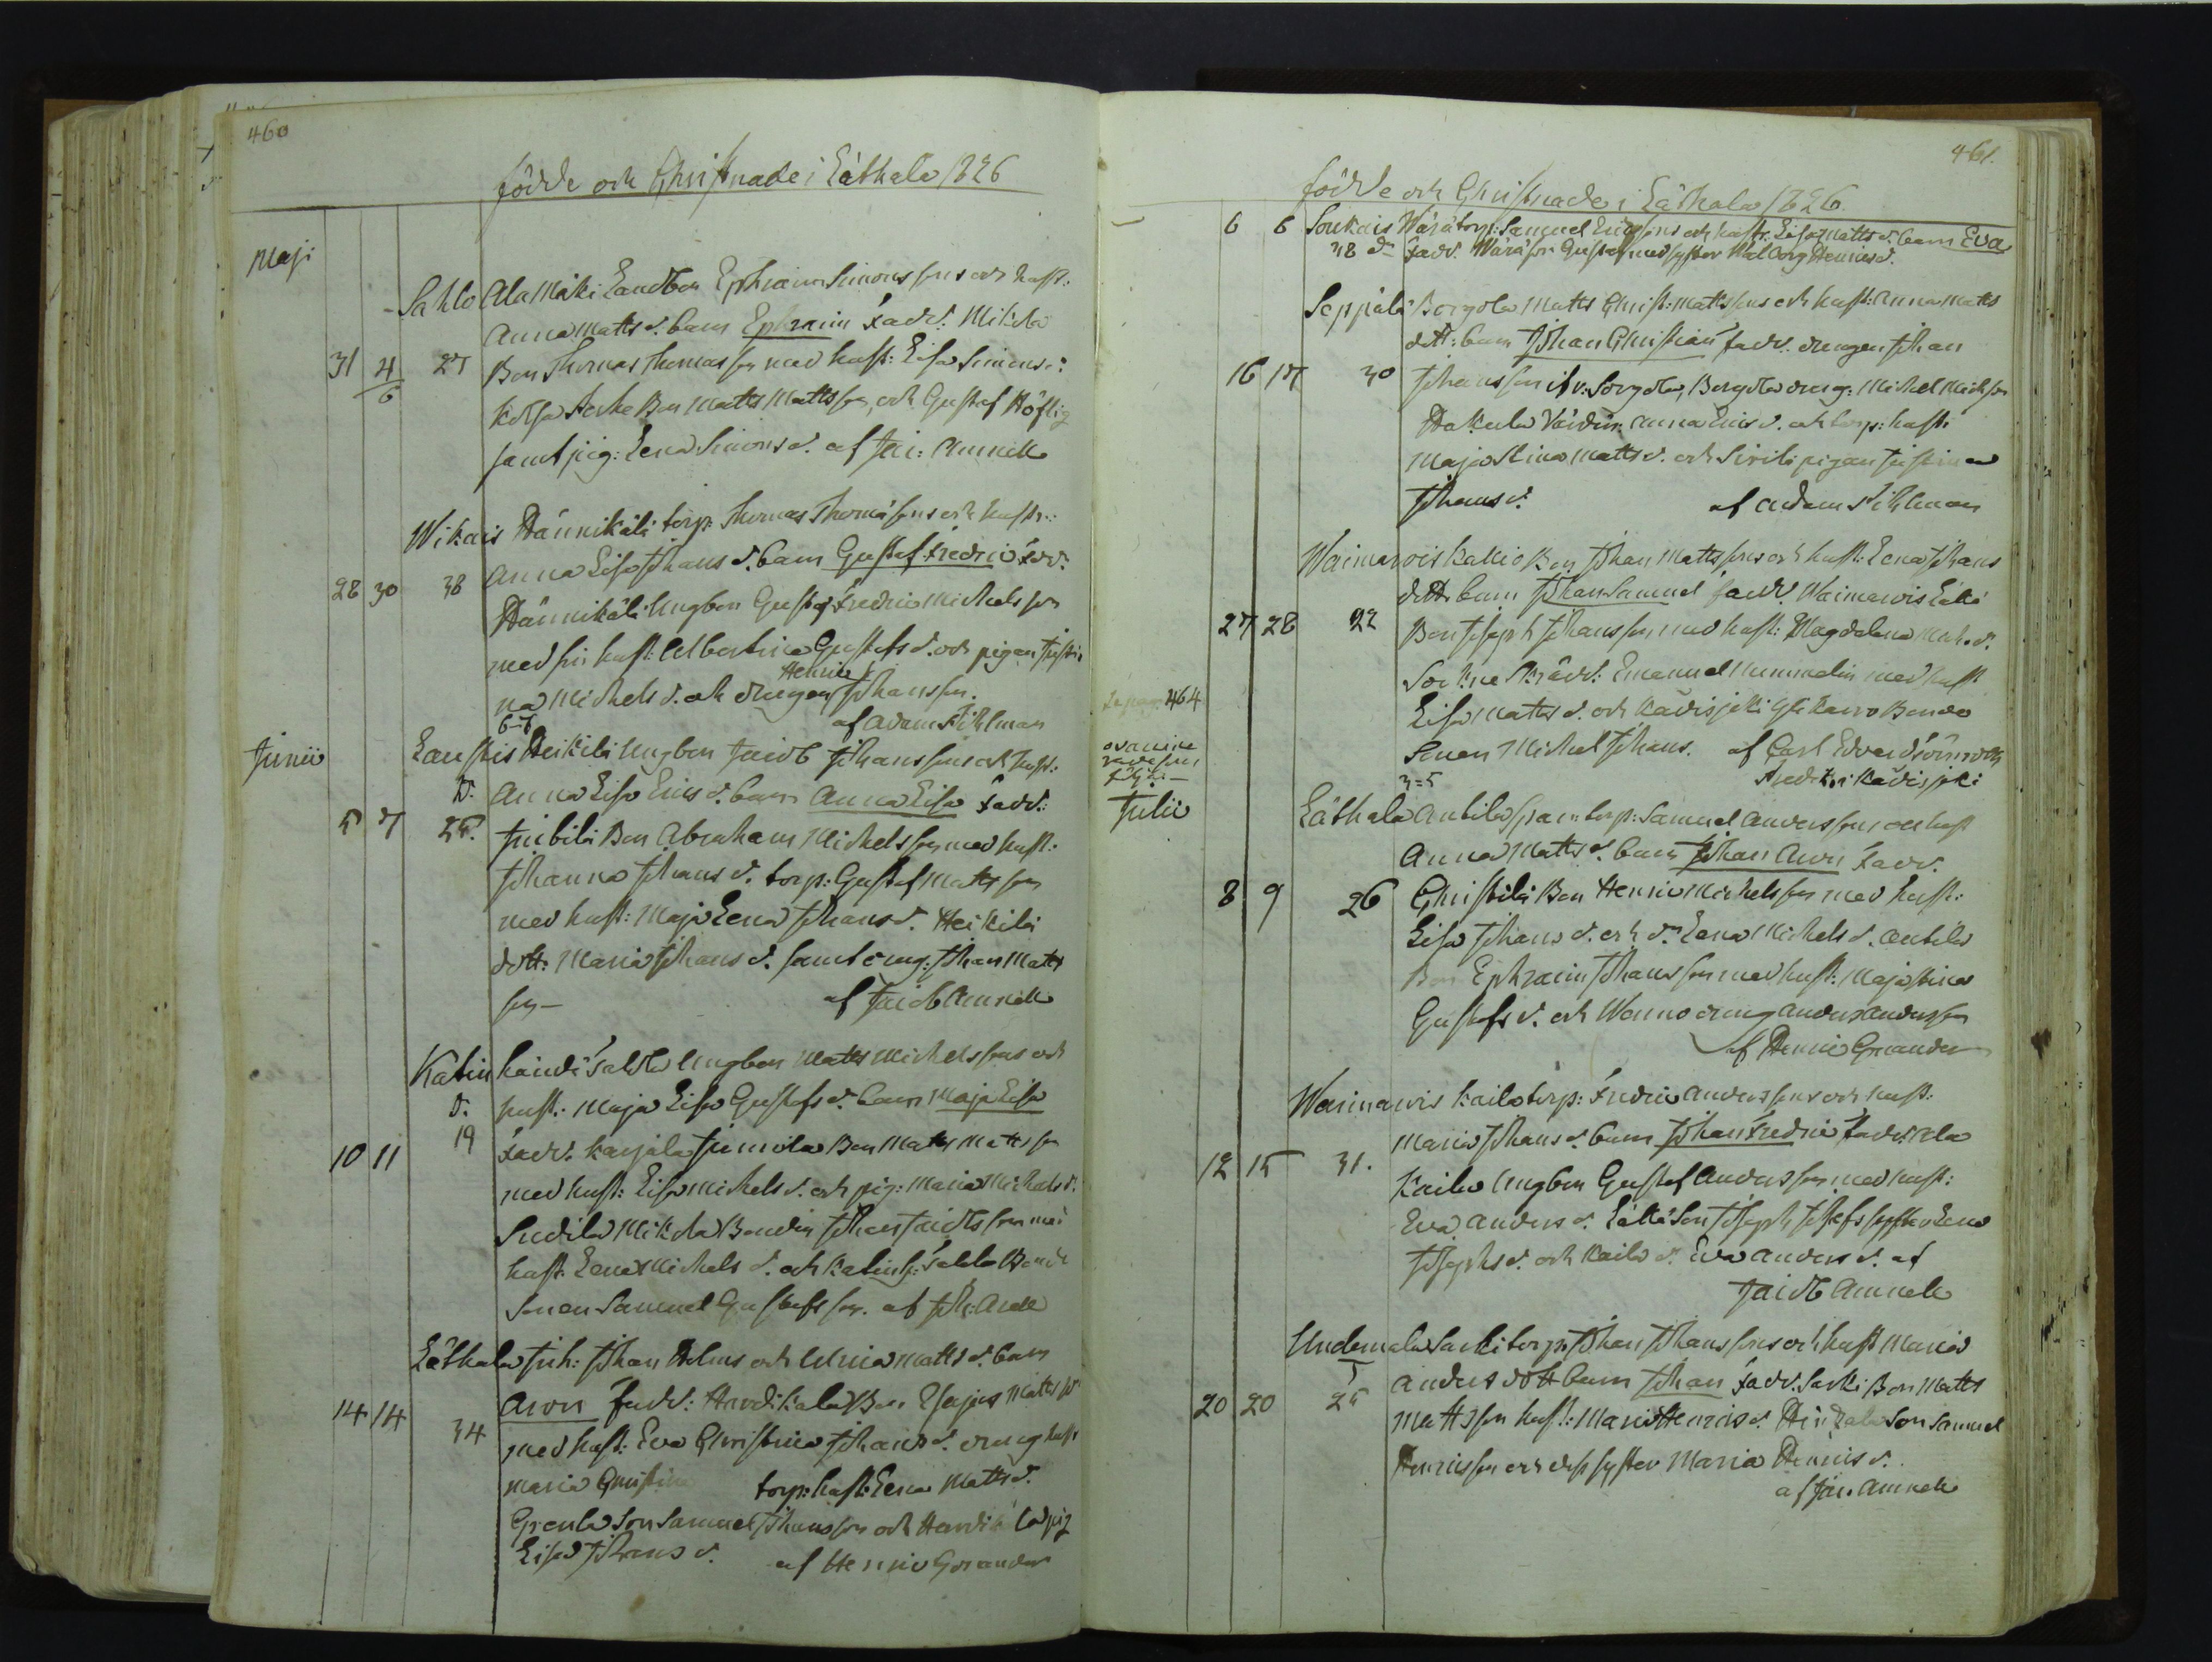 460
födde och Christnade i Läthala 1826
Maji
Sahlo Ala Mäki Landbon Ephraim Simonssons och hust:
Anna Matts d. barn Ephraim fadd: Mikola
31 4/6 27 Bon Thomas Thomasson med hust: Lisa Simons d:
Bon Matts Mattsson, och Gustaf Höflig
samt pig: Lena Simons d. af Jac: Amnell
Wikais Hännikäla torp: Thomas Thomassons och hustr:
Anna Lisa Johans d. barn Gustaf Fredric fadd:
28 30 38 Hännikälä Ungbon Gustaf Fredric Michelsson
med sin hust: Albertina Gustafs d. och pigan Justi
na Michels d. och drengen Henric Johansson.
6–7 af Adam Tihlman
Junii Laustis Heikilä Ungbon Jacob Johanssons och hust:
D. Anna Lisa Erics d. barn Anna Lisa fadd:
5 7 25. Junbila Bon Abraham Michelsson med hust:
Johanna Johans d. torp: Gustaf Mattsson
med hust: Maja Lena Johans d. Heikilä
dott: Maria Johans d. samt dreng: Johan Matts
son – af Jacob Amnell
Katinhändä Saldo Ungbon Matts Michelssons och
D. hust: Maja Lisa Gustafs d. barn Maja Lisa
10 11 19 fadd. Karjala Junnola Bon Matts Mattsson
med hust: Lisa Michels d. och pig: Maria Michels d.
Sudila Mikola Bonden Johan Jacobsson med
hust. Lena Michels d. och Katinh: Saldo Bonde
Sonen Samuel Gustafsson. af Joh: Arell
Läthala Inh: Johan Helins och Ulrica Matts d. barn
Aron fadd: Handikala Bon Esajas Mattsson
14 14 34 med hust: Eva Christina Johans d. dreng hust
Maria Christina torp: hust: Lena Matts d.
Grenla Son Samuel Johansson och Handika pig
Lisa Johans d. af Henric Grander
461.
födde och Christnade i Läthala 1826.
– 6 6 Soukais Wärä torp: Samuel Ericssons och hustr. Lisa Matts d. barn Eva
38 d– fadd. Wärä son Gustaf med syster Walborg Henrics d.
Seppälä Borgola Matts Christ: Mattssons och hust: Anna Matts
dott: barn Johan Christian fadd: drengen Johan
16 17 30 Johansson Borgola dreng: Michel Michson
Hakula Värdin Anna Erics d. och torp: hust:
Maja Stina Matts d. och pigan Justina
Johans d. af Adam Tihlman
Waimarois Kallio Bon Johan Mattssons och hust: Lena Johans
dott. barn Johan Samuel fadd. Waimarois Lälla
27 28 22 Bon Joseph Johansson med hust: Magdalena Mich. d.
Sockne Skrädd: Emanuel Nummelin med hust
Lisa Matts d. och Kadisjoki Bonde
Sonen Michel Johans. af Carl Edvard
3=5 Kadisjoki
Se pag. 464
Julii Läthala Antila torp: Samuel Anderssons och hust
Anna Matts d. barn Johan Aron fadd.
8 9 26 Christilä Bon Henric Michelsson med hust:
Lisa Johans d. och d. Lena Michels d. Antila
Bon Ephraim Johansson med hust: Maja Stina
Gustafs d. och Wanno dreng Anders Andersson
af Henric Grander
Waimarois Kaila torp: Fredric Anderssons och hust:
Maria Johans d. barn Johan Fredric fadd: Ala
12 15 31. Kaila Ungbon Gustaf Andersson med hust:
Eva Anders d. Lälla Son Joseph Josefs syster Lena
Josephs d. och Kaila d. Eva Anders d. af
Jacob Amnell
Undamala Sarki torp: Johan Johanssons och hust Maria
5 Anders dott barn Johan fadd. Sarki Bon Matts
20 20 25 Mattsson hust: Maria Henrics d. Son Samuel
Henricsson och dess syster Maria Henrics d.
af Jac. Amnell